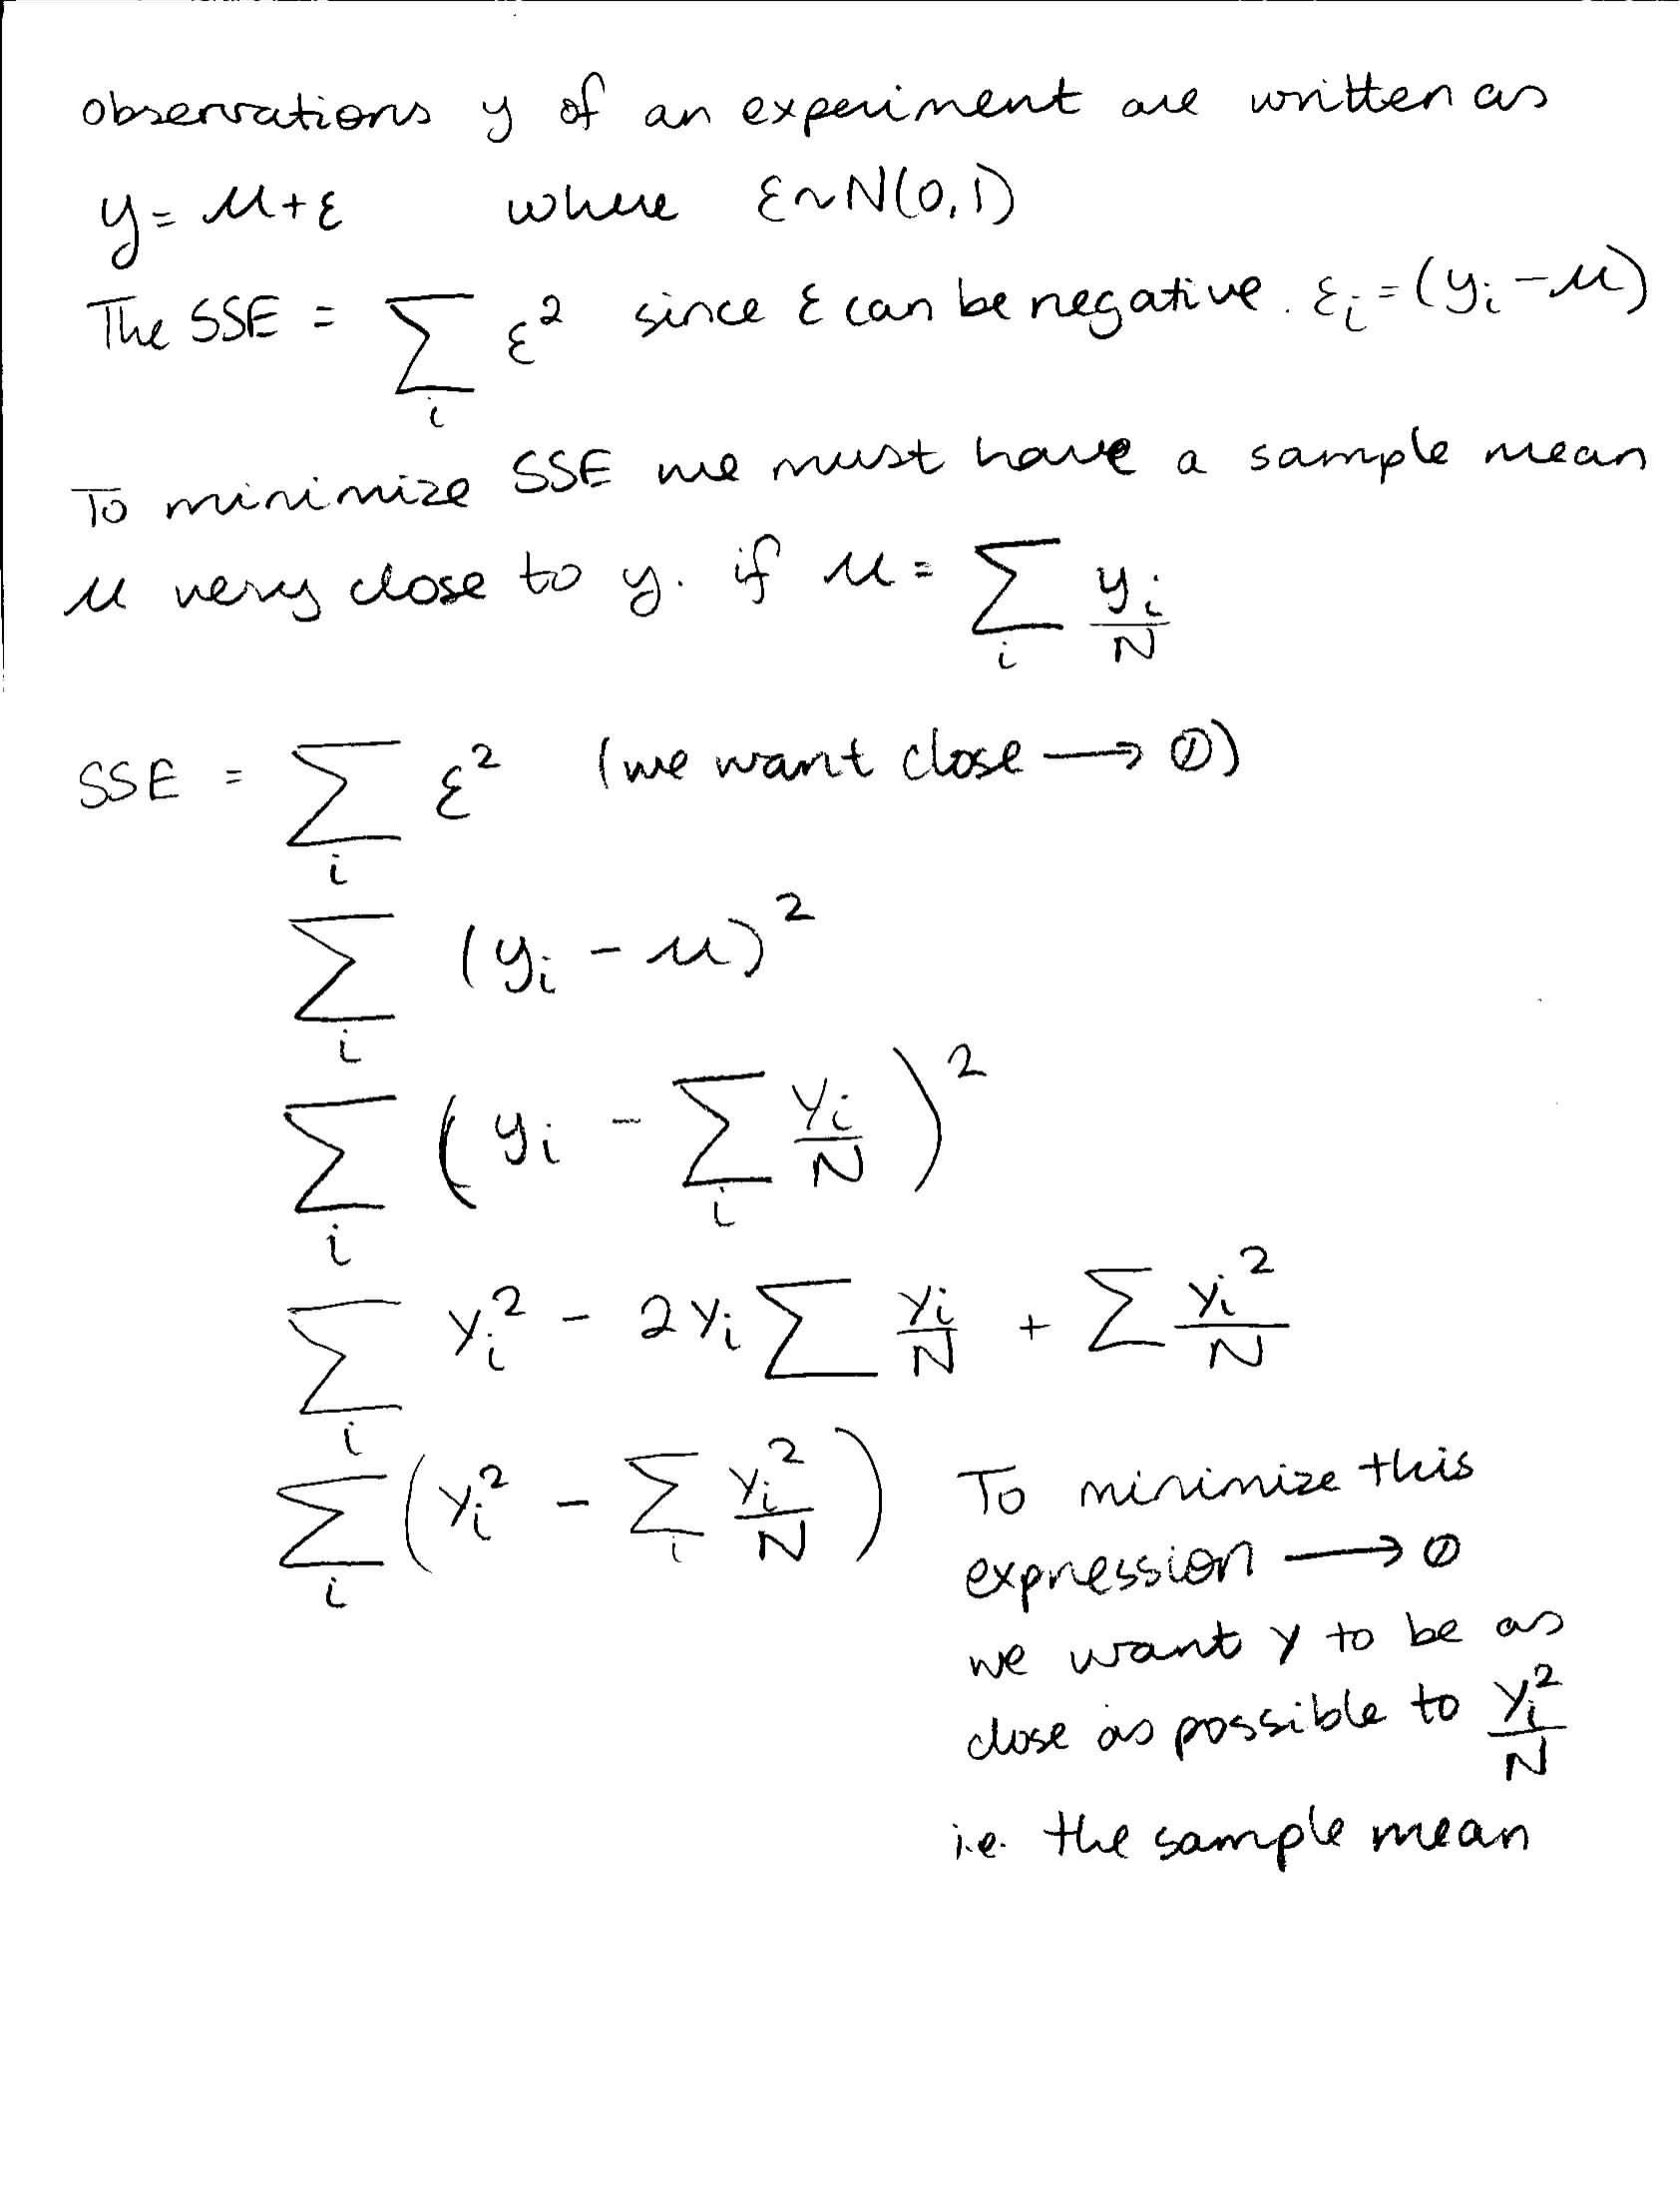 observations y of an experiment are written as
y = μ + ε where ε ~ N(0,1)
The SSE = ∑_i ε² since ε can be negative. ε_i = (y_i - μ)
To minimize SSE we must have a sample mean
μ very close to y. if μ = ∑_i y_i/N
SSE = ∑_i ε² (we want close → 0)
∑_i (y_i - μ)²
∑_i (y_i - ∑_i y_i/N)²
∑_i y_i² - 2y_i ∑ y_i/N + ∑ y_i²/N
∑_i (y_i² - ∑_i y_i²/N) To minimize this
expression → 0
we want y to be as
close as possible to y_i²/N
i.e. the sample mean